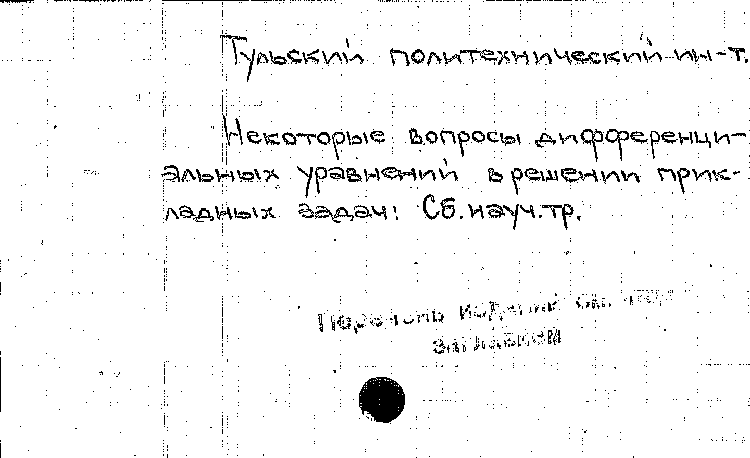 Тульский политехнический ин-т.
Некоторые вопросы дифференци-
альных уравнений в решении прик-
ладных задач: Сб. науч. тр.
Перечень изданий см. под
заглавием